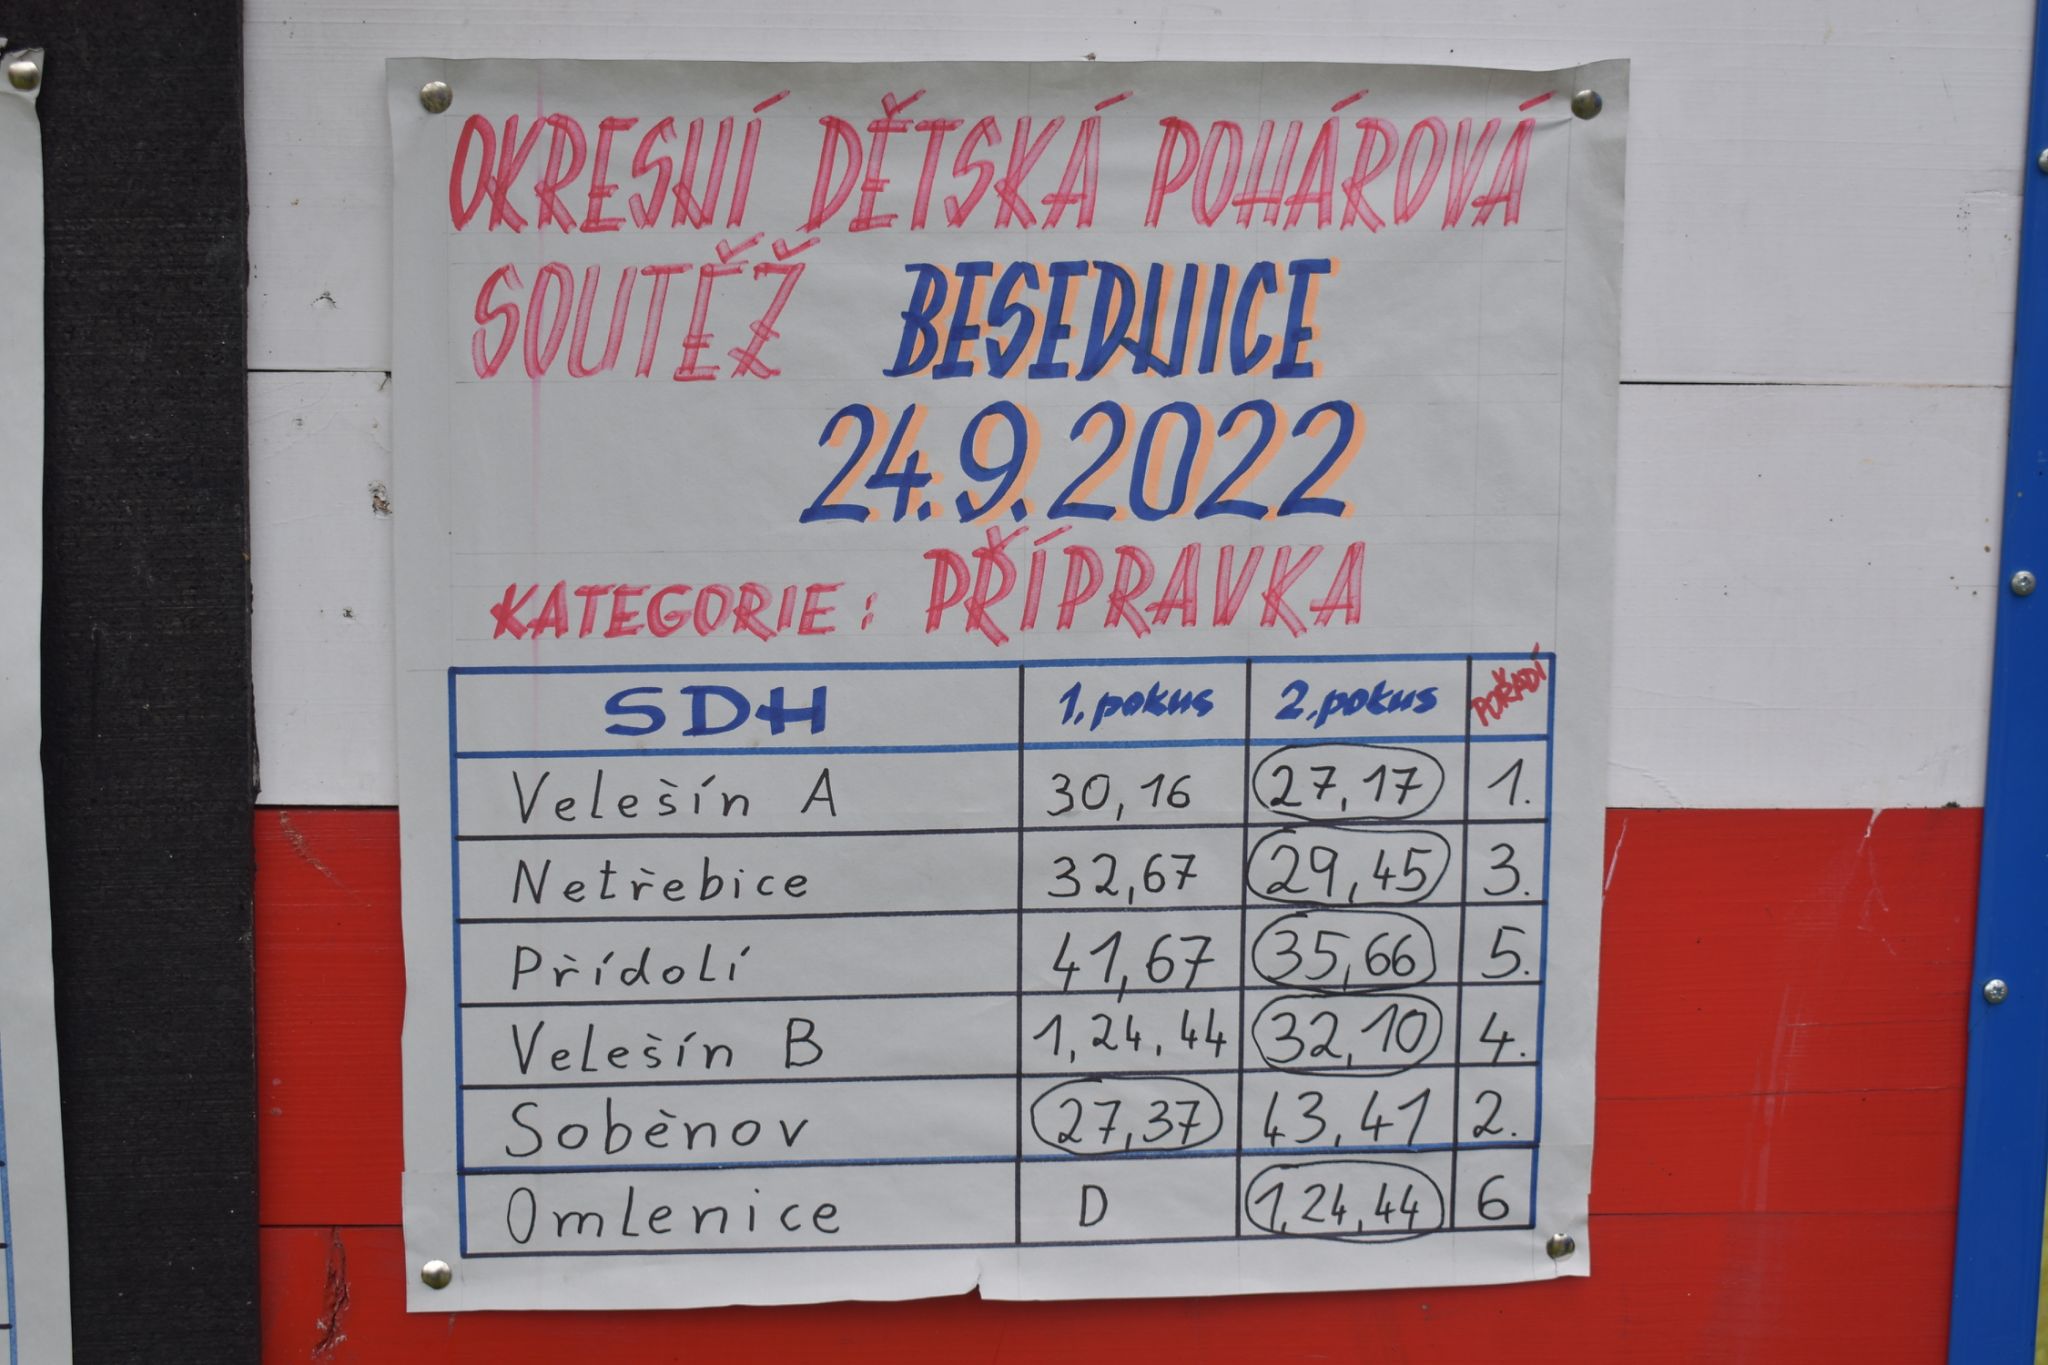 OKRESNÍ DĚTSKÁ POHÁROVÁ
SOUTĚŽ BESEDNICE
24.9.2022
KATEGORIE: PŘÍPRAVKA
SDH 1.pokus 2.pokus POŘADÍ
Velešín A 30,16 27,17 1.
Netřebice 32,67 29,45 3.
Přídolí 41,67 35,66 5.
Velešín B 1,24,44 32,10 4.
Soběnov 27,37 43,41 2.
Omlenice D 1,24,44 6